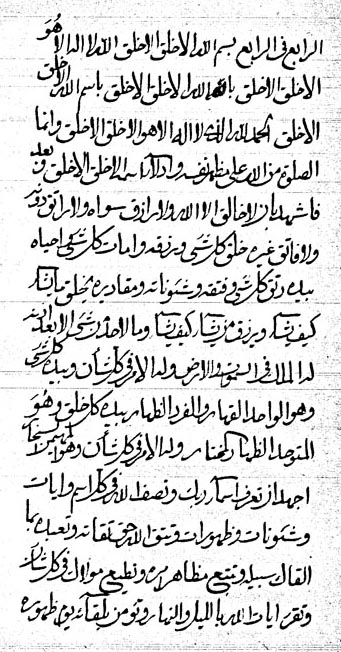 الرابع في الرابع بسم الله الاخلق الاخلق الله لا اله الا هو
الاخلق الاخلق بالله الله الاخلق الاخلق باسم الله الاخلق
الاخلق الحمد لله الذي لا اله الا هو الاخلق الاخلق وانما
الصلوة من الله على مظاهر نفسه الاخلق الاخلق وبعد
فاشهد بان لا خالق الا الله ولا رازق سواه ولا راتق دونه
ولا فاتق غيره خلق كل شيء ورزقه وامات كل شيء واحياه
بيده رتق كل شيء وفتقه وشئوناته ومقاديره يخلق ما يشاء
كيف يشاء ويرزق من يشاء كيف يشاء وما لاحد من شيء الا بعد اذنه
له الملك في السموات والارض وله الامر في كل شأن وبيده كل شيء
وهو الواحد القهار والفرد الظهار بيده كل خلق وهو
المتوحد الظهار المختار وله الامر في كل شأن وهو المهيمن
اجهد ان تعرف اسماء ربك وتصف الله في كل اسم وايات
وشئونات وظهورات وتتق الله حق تقاته وتعبده بما
القاك سبيله وتتبع مظاهر امره وتطيع مولاك في كل شأن
وتقرء ايات الله بالليل والنهار وتؤمن بلقائه يوم ظهوره